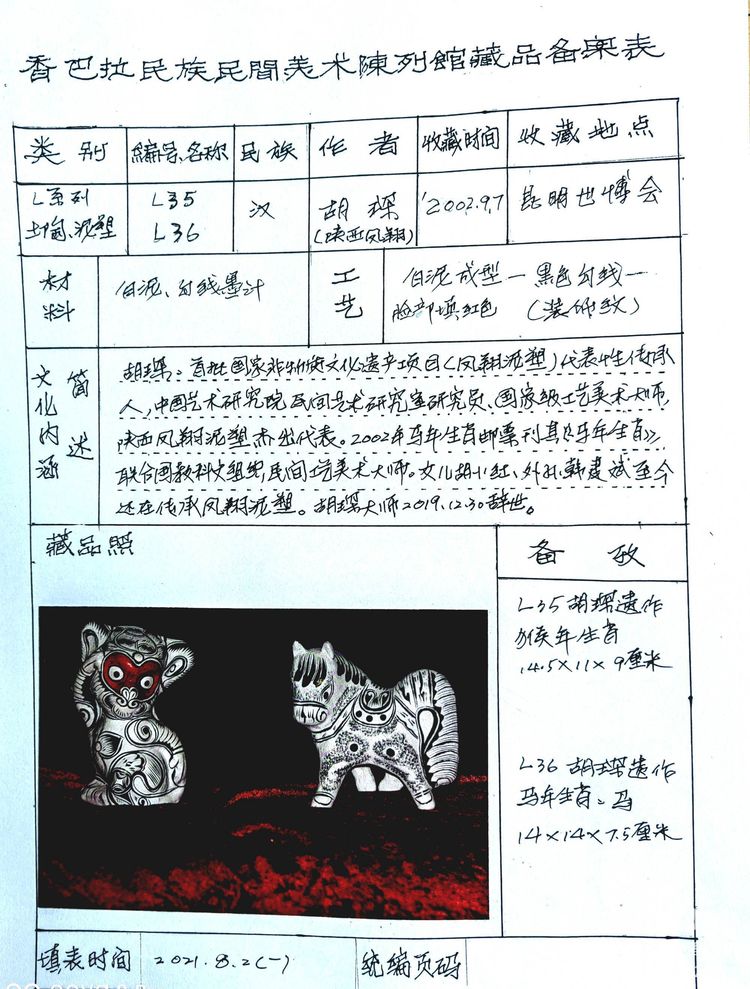 香巴拉民族民間美术陳列館藏品备案表
类别 編号、名称 民族 作者 收藏时间 收藏地点
L系列 土陶、泥塑 L35 L36 汉 胡琛 (陕西凤翔) 2002.9.7 昆明世博会
材料 白泥、勾线墨汁 工艺 白泥成型—黑色勾线—
脸部填红色 (装饰纹)
文化内涵 简述
胡琛:首批国家非物质文化遗产项目(凤翔泥塑)代表性传承
人,中国艺术研究院民间艺术研究室研究员、国家级工艺美术大师,
陕西凤翔泥塑杰出代表。2002年马年生肖邮票刊其《马年生肖》,
联合国教科文组织,民间工艺美术大师。女儿胡小红、外孙韩建斌至今
还在传承凤翔泥塑。胡琛大师2019.12.30辞世。
藏品照 备攷
L35胡琛遗作
猴年生肖
14.5×11×9厘米
L36胡琛遗作
马年生肖:马
14×14×7.5厘米
填表时间 2021.8.2(一) 统编页码